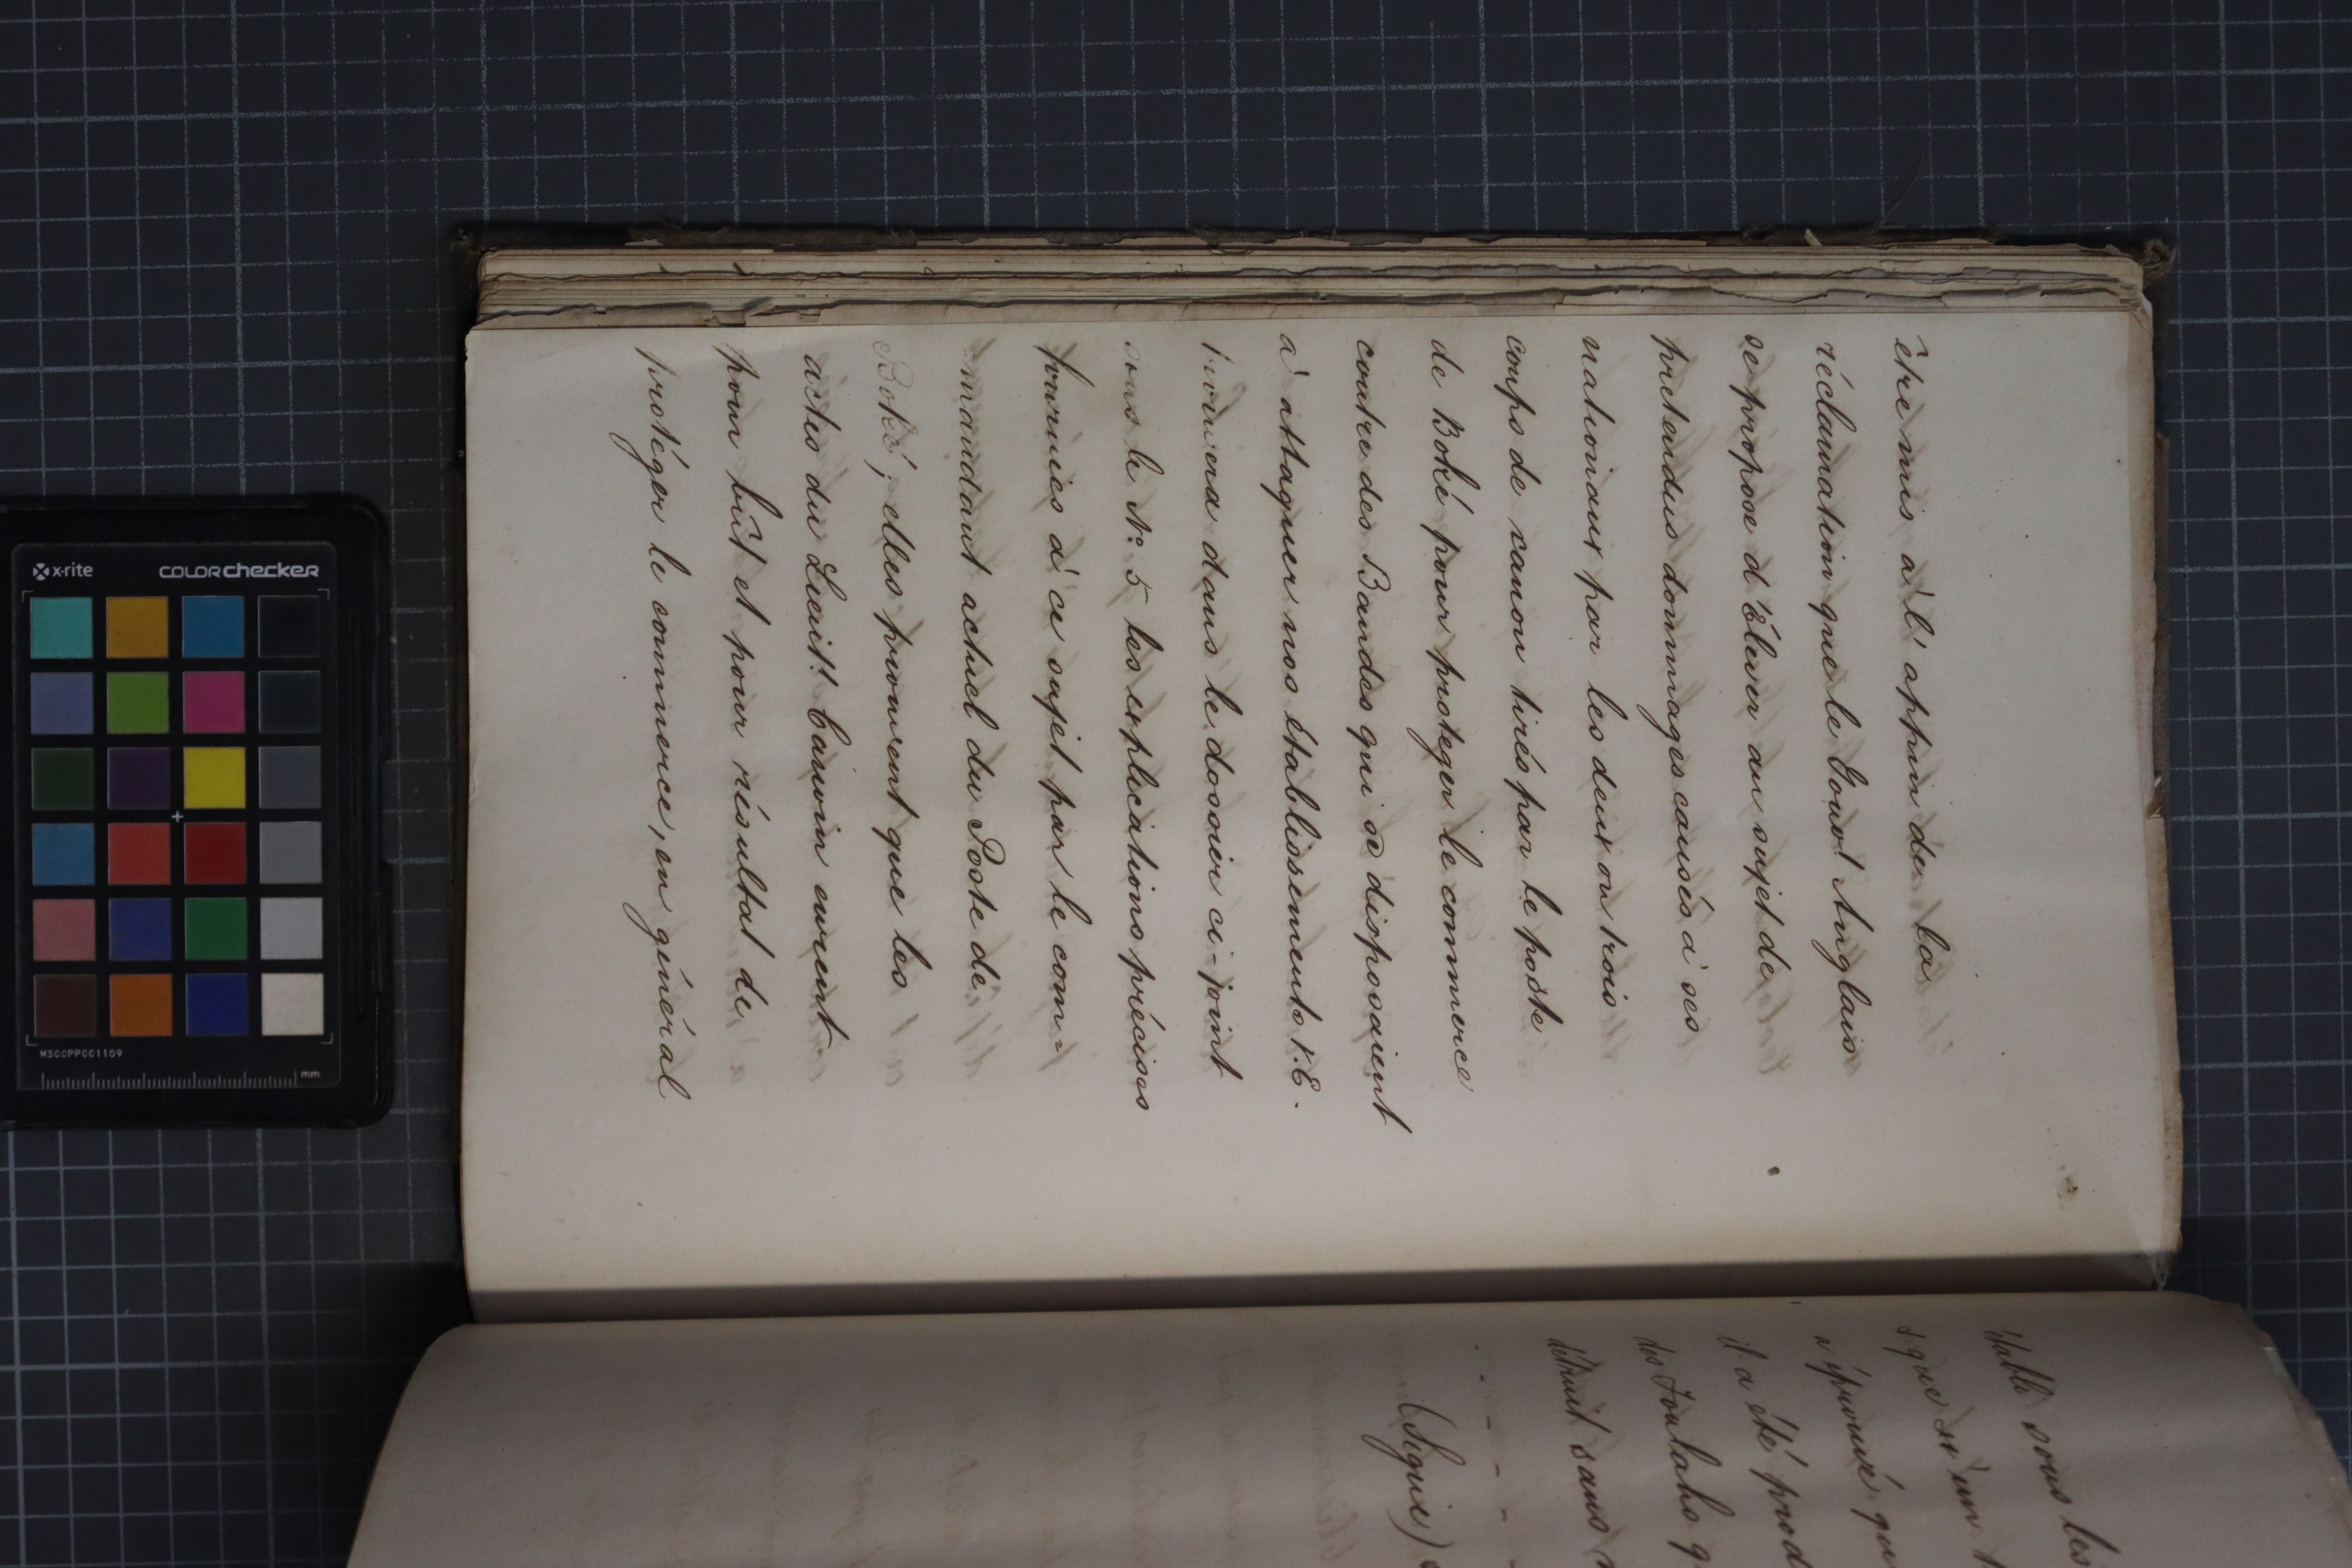 être mis à l'appui de la
réclamation que le Gouvt Anglais
se propose d'Élever au sujet de
pretendus dommages causés à ses
nationaux par les deux ou trois
coups de canon tirés par le poste
de Boké pour proteger le commerce
contre des Bandes qui se disposaient
à attaquer nos établissements V.E.
trouvera dans le dossier ci-joint
sous le No 5 les explications précises
fournies à ce sujet par le com=
mandant actuel du Poste de
Boké; elles prouvent que les
actes du Lieutt Cauvin eurent
pour bût et pour résultat de
protéger le commerce, en général
sous les
que si un
éprouvé qu
il a été prod
des Foulahs q
détruit sans
(Signé)
x-rite
colorchecker
MSCCPPCC1109
mm